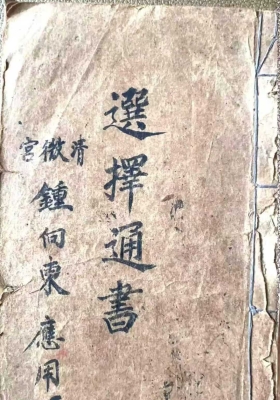 選擇通書
清微宮
鍾向東應用